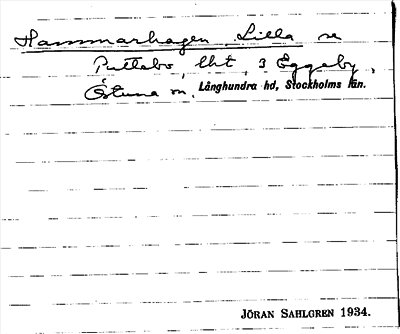 Hammarhagen, Lilla se
Puttebo, lht, 3 Eggeby,
Östuna sn, Långhundra hd, Stockholms län.
JÖRAN SAHLGREN 1934.